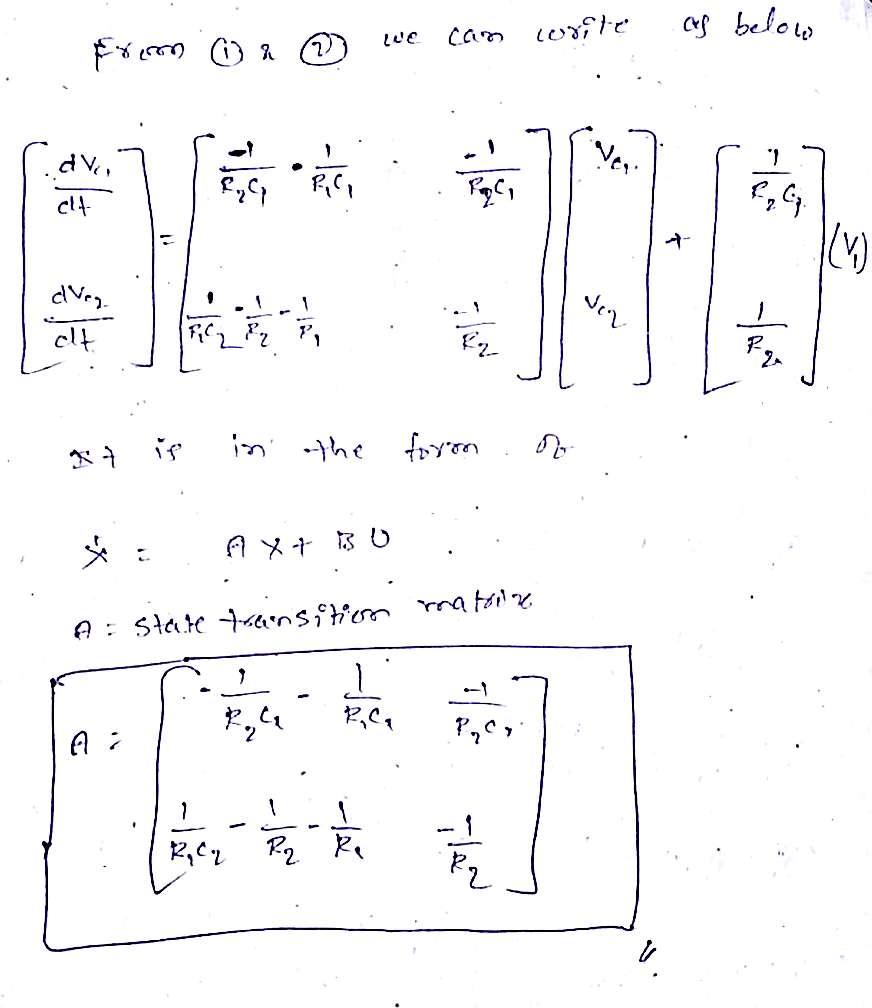 From ① & ② we can write as below
[dVc₁/dt ; dVc₂/dt] = [-1/R₂C₁ · 1/R₁C₁   -1/R₂C₁ ; 1/R₁C₂ - 1/R₂ - 1/R₁   -1/R₂] [Vc₁ ; Vc₂] + [1/R₂C₁ ; 1/R₂] (V₁)
It is in the form of
Ẋ = AX + BU
A = state transition matrix
A = [-1/R₂C₁ - 1/R₁C₁   -1/R₂C₁ ; 1/R₁C₂ - 1/R₂ - 1/R₁   -1/R₂]